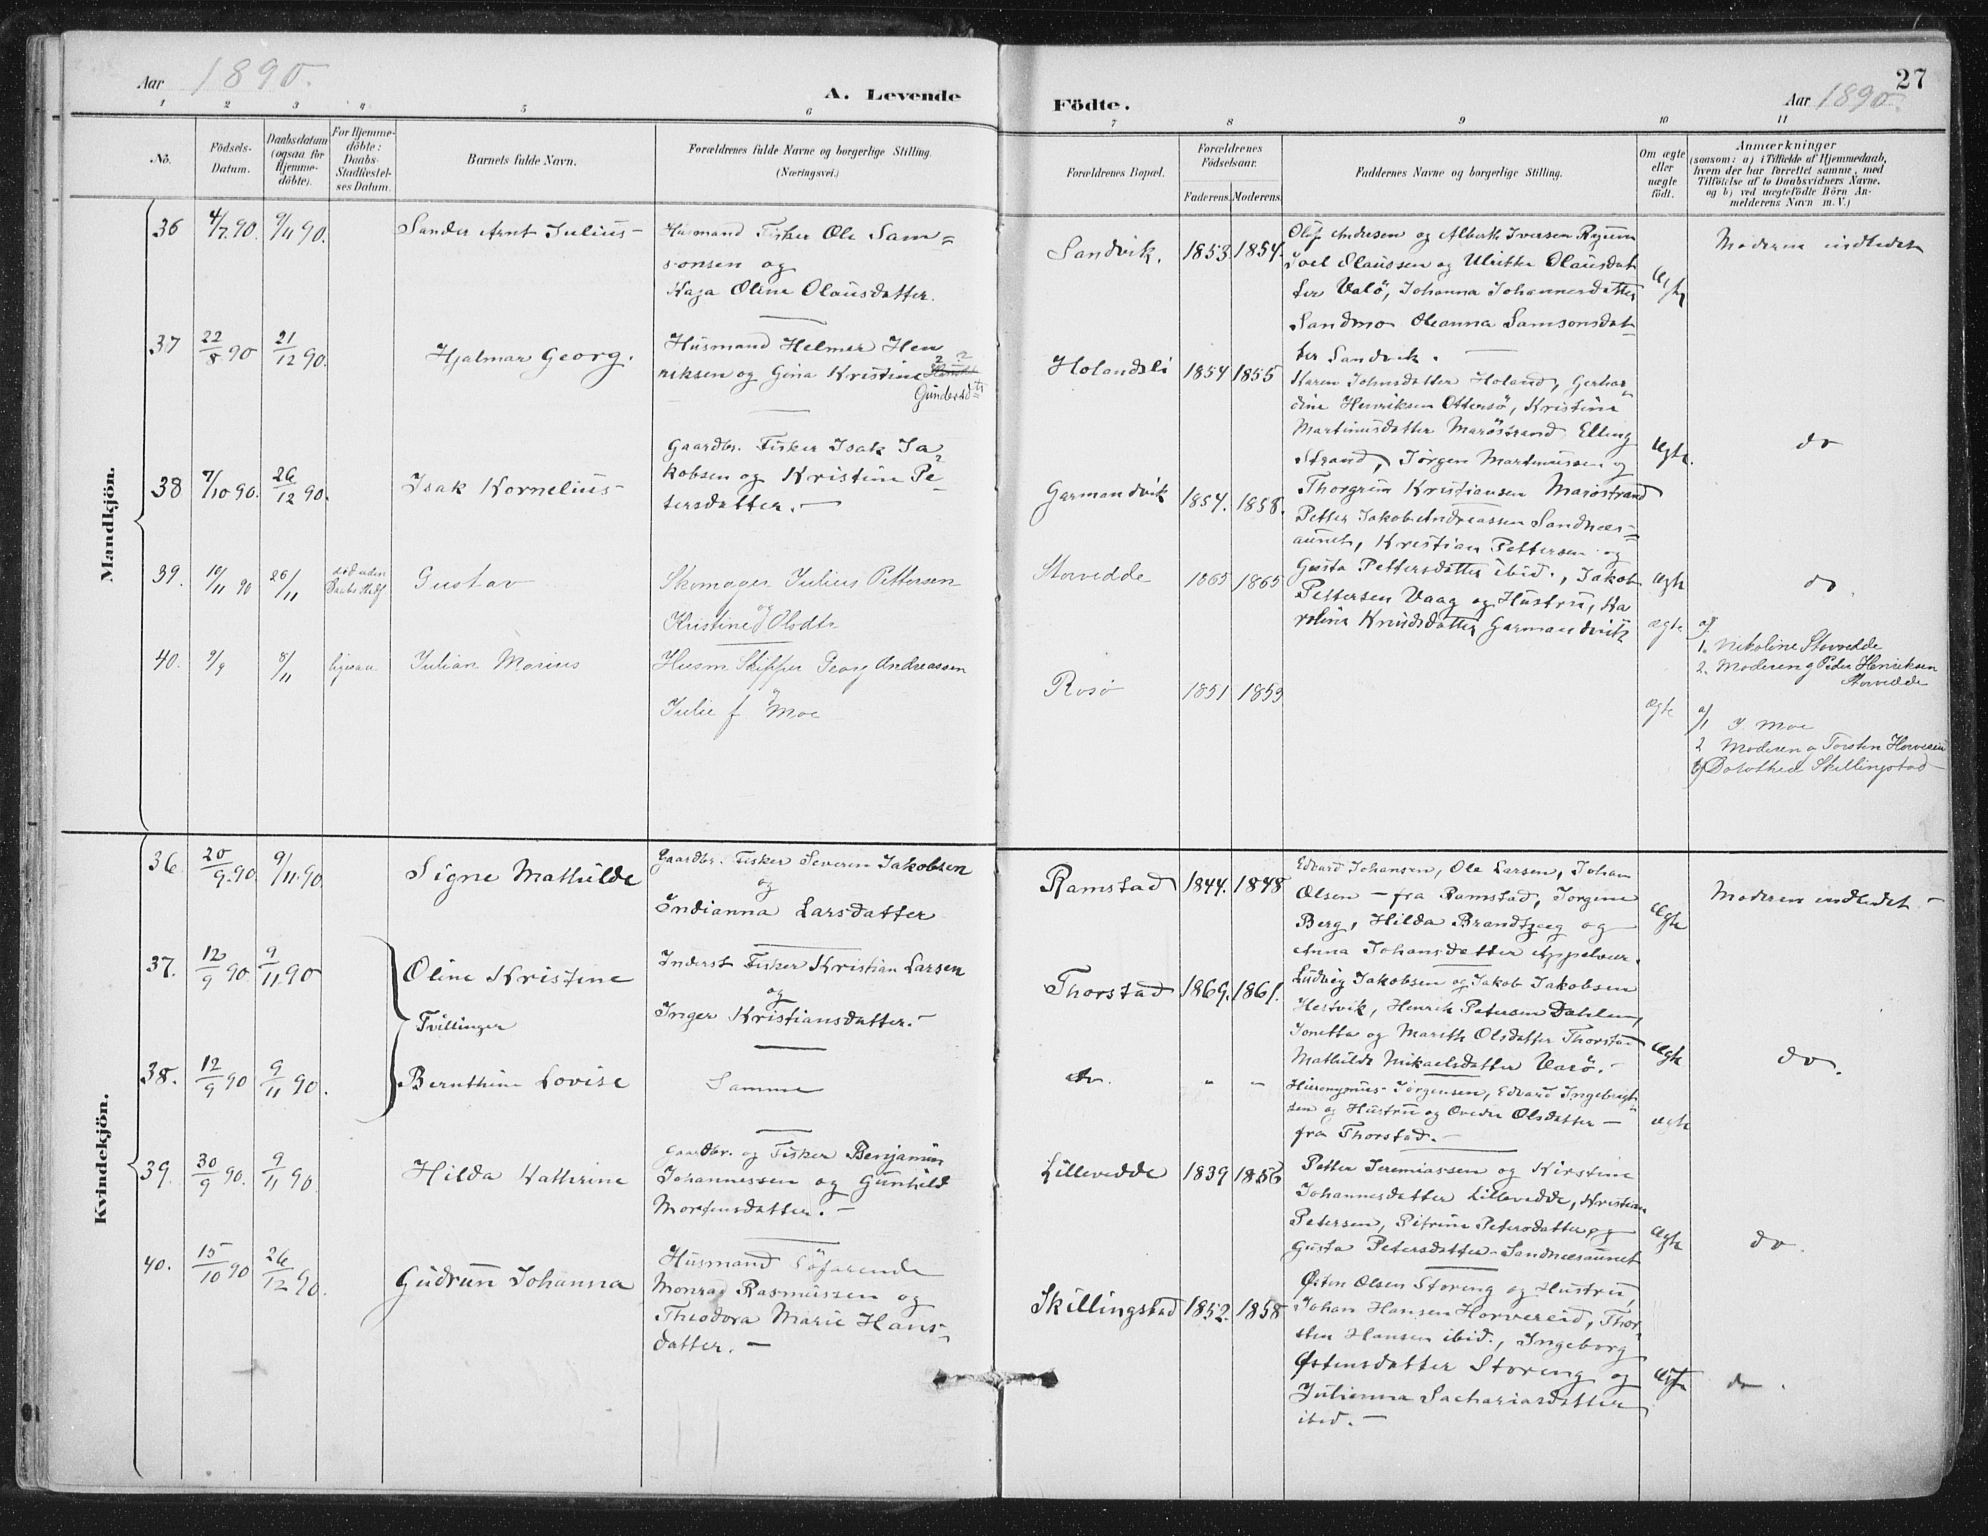 Aar 1890.
A. Levende
Födte.
Aar 1890.
27
1 2 3 4 5 6 7 8 9 10 11
No.
Födsels-
Datum.
Daabsdatum
(ogsaa for
Hjemme-
döbte).
For Hjemme-
döbte:
Daabs-
Stadfæstel-
ses Datum.
Barnets fulde Navn.
Forældrenes fulde Navne og borgerlige Stilling.
(Næringsvei.)
Forældrenes Bopæl.
Forældrenes
Födselsaar.
Faderens. Moderens.
Faddernes Navne og borgerlige Stilling.
Om ægte
eller
uægte
födt.
Anmærkninger
(saasom: a) i Tilfælde af Hjemmedaab,
hvem der har forrettet samme, med
Tilföielse af to Daabsvidners Navne,
og b) ved uægtefödte Börn An-
melderens Navn m. V.)
Mandkjön.
36 4/7.90. 9/11 90. Sander Arnt Julius-
Husmand Fisker Ole Sam=
sonsen og
Kaja Oline Olausdatter.
Sandvik. 1853 1854.
Olof Andersen og Albert Iversen Ryum
Joel Olaussen og Ulrikke Olausdat
ter Valö, Johanna Johannesdatter
Sandmo Oleanna Samsonsdat-
ter Sandvik. -
Ægte
Moderne indledet
37 22/8 90 21/12 90. Hjalmar Georg.
Husmand Helmer Hen
riksen og Gina Kristine
Gundersdtr
Holandsli 1854 1855
Karen Johnsdatter Holand, Gerhar-
dine Henriksen Ottersö, Kristine
Martinusdatter Maröstrand Elling
Strand, Jörgen Martinussen og
Thorgrim Kristiansen Maröstrand
Ægte.
do
38 7/10 90. 26/12 90. Isak Kornelius-
Gaardbr. Fisker Isak Ja
kobsen og Kristine Pe-
tersdatter. -
Garmandvik 1854. 1858.
Petter Jakob Andreassen Sandnes-
aunet, Kristian Pettersen og
Gusta Pettersdatter ibid., Jakob
Pettersen Vaag og Hustru, Ka
roline Knudsdatter Garmandvik
Ægte
do.
39. 10/11 90 26/11
död uden
Daabs Stadf
Gustav
Skomager Julius Pettersen
og
Kristine Olsdtr
Storvedde 1865 1865
ægte
a/
1. Nikoline Storvedde
2. Moderen og Peder Henriksen
Storvedde
40. 9/9 8/11 ligesaa Julian Marius
Husm Skipper Georg Andreassen
Julie f Moe
Rosø 1851 1853
ægte
a/
1 J. Moe
2 Moderen og Torsten Horvereid
b/ Dorothea Skillingstad
Kvindekjön.
36 20/9.90. 9/11.90. Signe Mathilde
Gaardbr. Fisker Severin Jakobsen
og
Indianna Larsdatter
Ramstad 1844. 1848
Edvard Johansen, Ole Larsen, Johan
Olsen - fra Ramstad, Jorgine
Berg, Hilda Brandtzæg og
Anna Johansdatter Appelvær.
Ægte
Moderen indledet. -
37. 12/9 90 9/11.90 Oline Kristine
Inderst Fisker Kristian Larsen
og
Inger Kristiansdatter. -
Thorstad 1869. 1861.
Ludvig Jakobsen og Jakob Jakobsen
Hestvik, Henrik Petersen Dahlen,
Jonetta og Marith Olsdatter Thorstad
Mathilde Mikaelsdatter Varö. -
Ægte
do.
Tvillinger
38. 12/9 90 9/11 90. Bernthine Lovise
Samme
do. " "
Hieronymus Jörgensen, Edvard Ingebrigt-
sen og Hustru og Ovedie Olsdatter -
fra Thorstad. -
ægte
39. 30/9 90. 9/11 90. Hilda Kathrine
Gaardbr. og Fisker Benjamin
Johannessen og Gunhild
Mortensdatter. -
Lillevedde 1839 1856
Petter Jeremiassen og Kirstine
Johannesdatter Lillevedde, Kristian
Petersen, Petrine Petersdatter og
Gusta Petersdatter Sandnesaunet
Ægte
do.
40. 15/10 90 26/12 90. Gudrun Johanna
Husmand Söfarende
Monrad Rasmussen og
Theodora Marie Hans-
datter. -
Skillingstad 1852. 1858
Østen Olsen Storeng og Hustru,
Johan Hansen Horvereid, Thor-
sten Hansen ibid., Ingeborg
Østensdatter Storeng og
Julianna Sachariasdatter
ibid. -
Ægte
do.